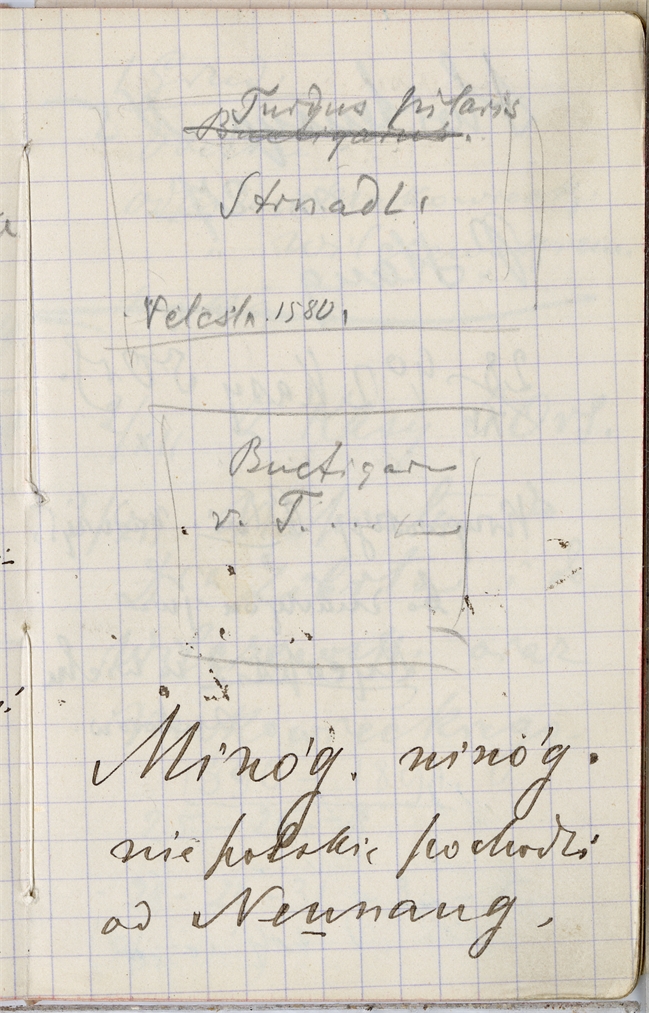 Turdus pilaris
Strnadl.
Velesl. 1580.
v. T.
Minóg. ninóg.
nie polskie pochodzi
od Neunaug.